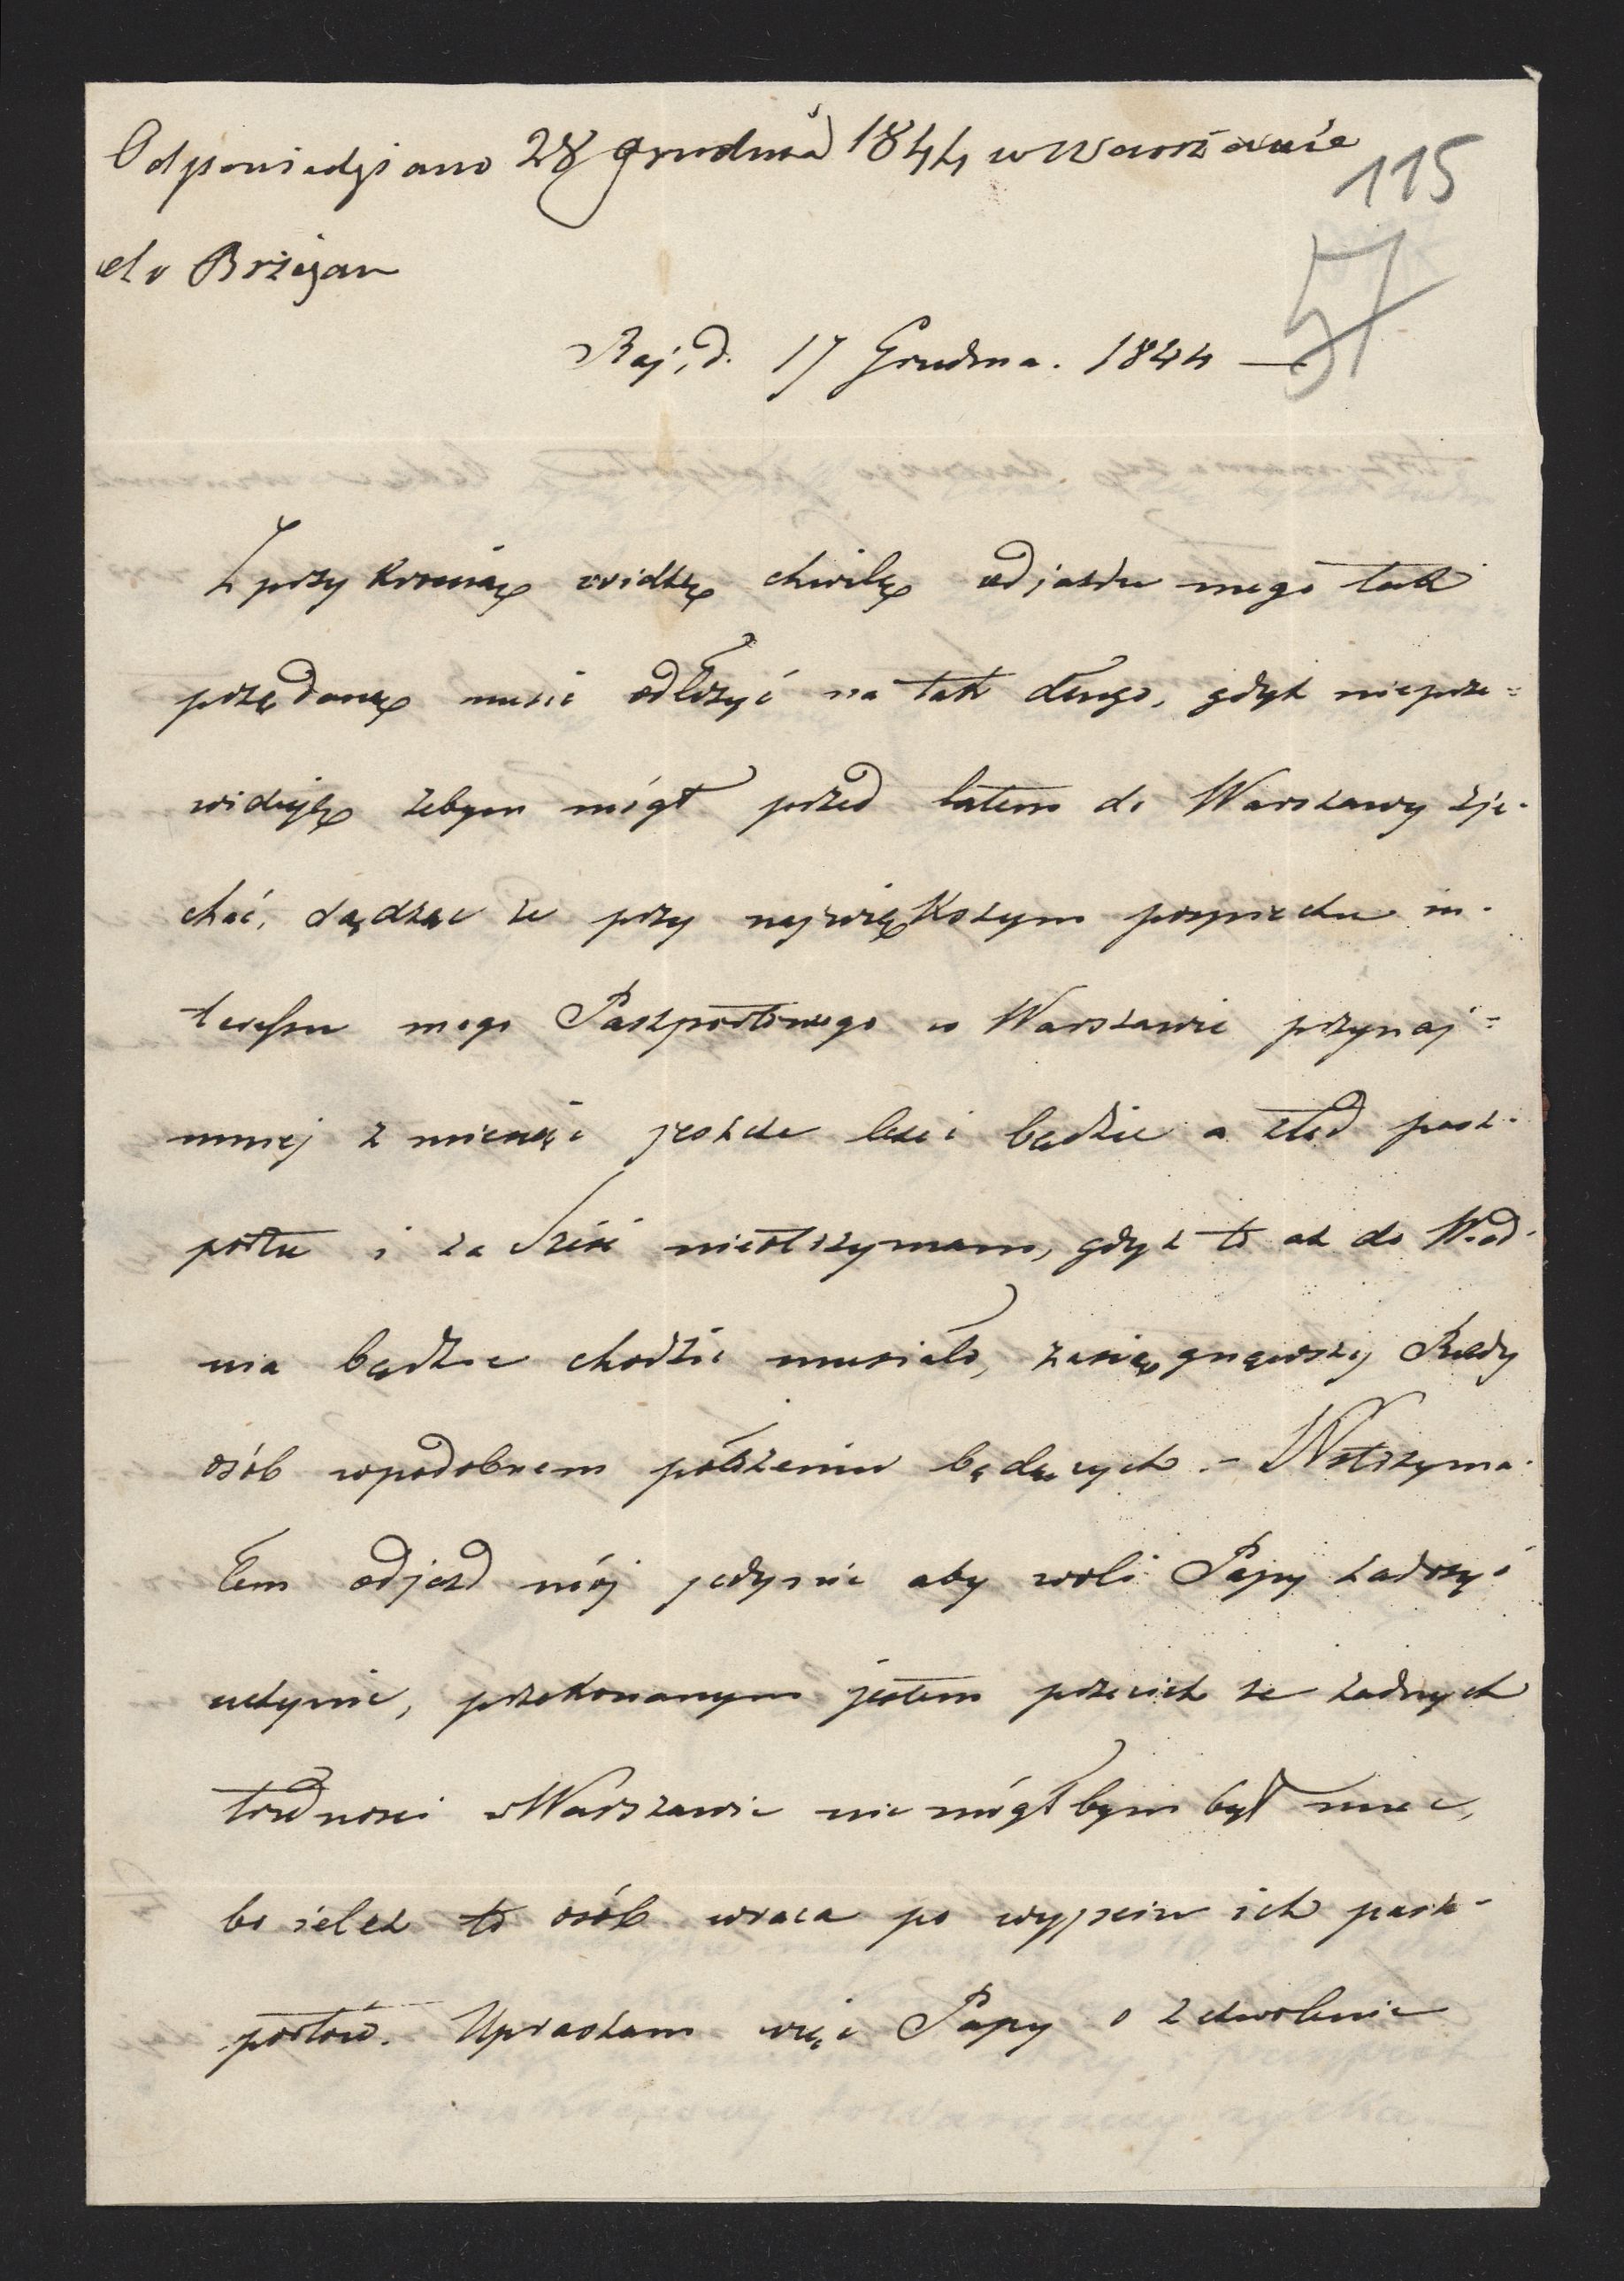 Odpowiedziano 28 grudnia 1844 w Warszawie
115
do Brzeżan
57
Raj, d. 17 Grudnia. 1844 —
Z przykrością widzę chwilę odjazdu mego tak
pożądaną musić odłożyć na tak długo, gdyż nieprze=
widuję żebym mógł przed latem do Warszawy zje-
chać, sądząc że przy największym pospiechu in-
teressu mego Paszportowego w Warszawie przynaj=
mniej z miesiąc jeszcze leżeć będzie a ztąd pasz-
portu i za sześć nieotrzymam, gdyż to aż do Wied-
nia będzie chodzić musiało, zasięgnąwszy Rady
osób wpodobnem położeniu będących. – Wstrzyma-
łem odjazd mój jedynie aby woli Papy zadosyć
uczynić, przekonanym jestem przecież że żadnych
trudnosci w Warszawie nie mógłbym był miec,
bo ileż to osób wraca po wyjściu ich pasz-
portów. Upraszam więc Papy o zezwolenie